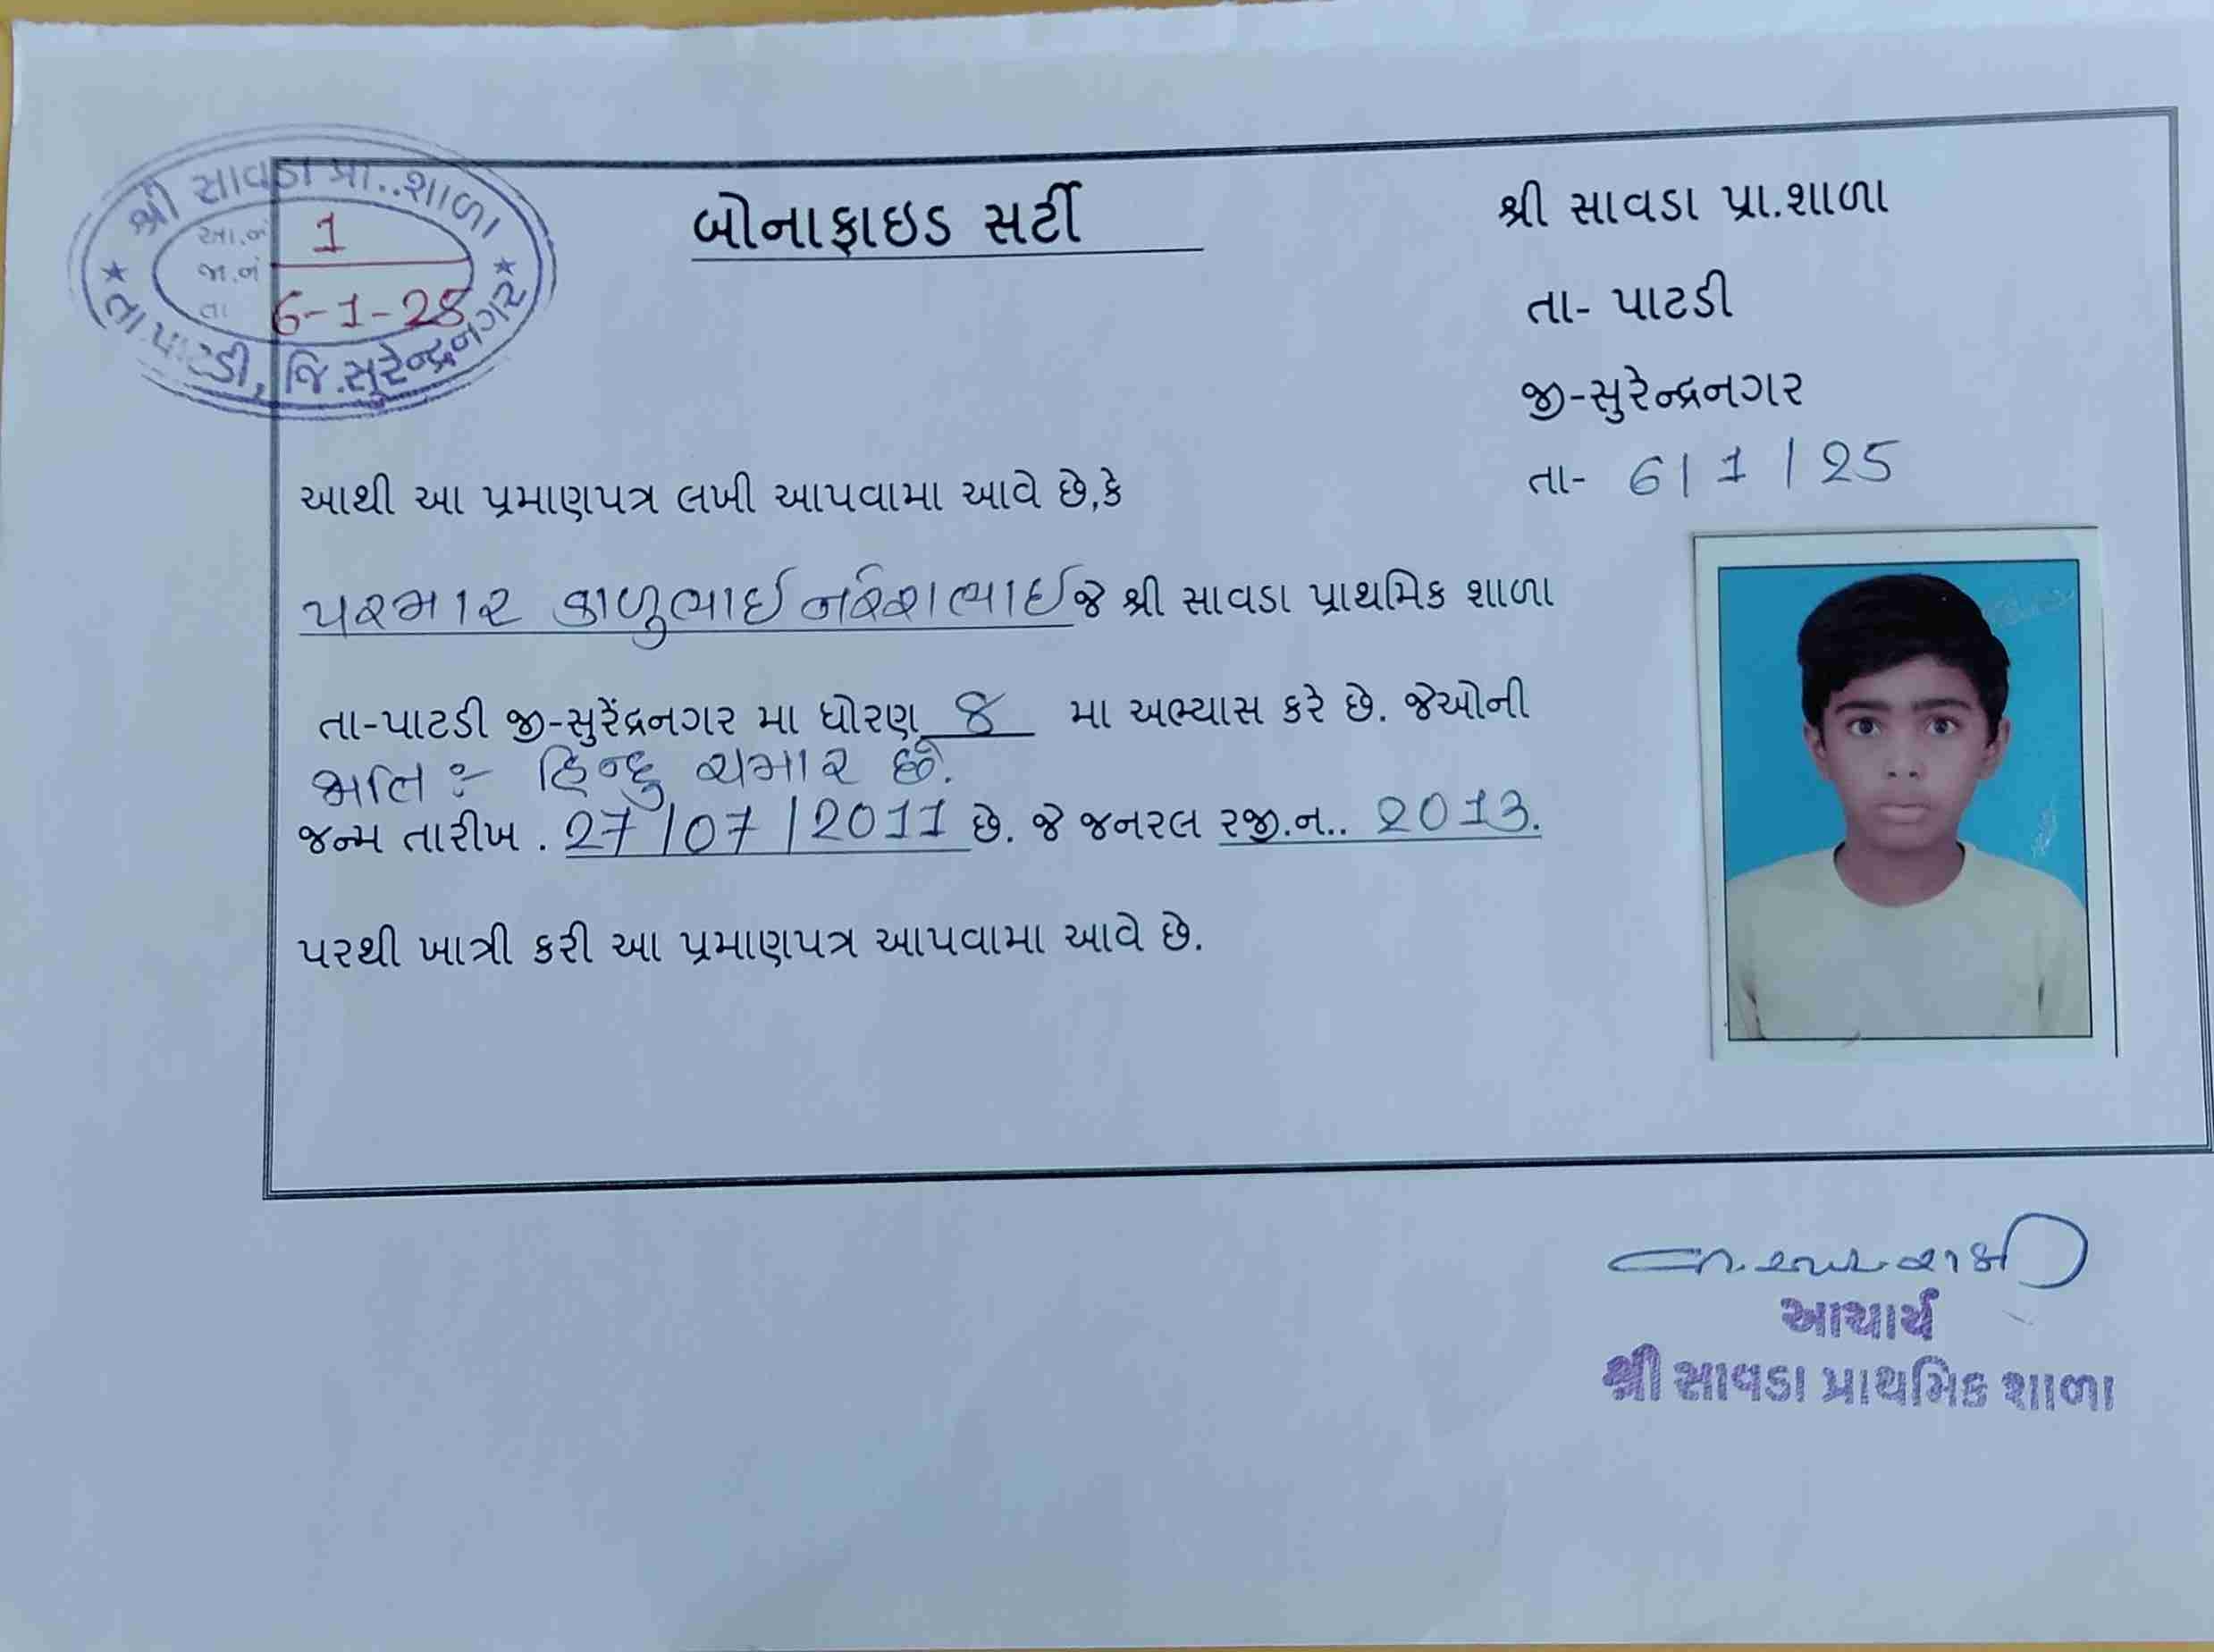 શ્રી સાવડા પ્રા..શાળા
આ.નં 1
જા.નં
તા 6-1-25
તા.પાટડી, જિ.સુરેન્દ્રનગર
બોનાફાઇડ સર્ટી
શ્રી સાવડા પ્રા.શાળા
તા- પાટડી
જી-સુરેન્દ્રનગર
તા- 6/1/25
આથી આ પ્રમાણપત્ર લખી આપવામા આવે છે,કે
પરમાર કાળુભાઈ નરેશભાઈ જે શ્રી સાવડા પ્રાથમિક શાળા
તા-પાટડી જી-સુરેંદ્રનગર મા ધોરણ 8 મા અભ્યાસ કરે છે. જેઓની
જાતિ ઃ- હિન્દુ ચમાર છે.
જન્મ તારીખ . 27/07/2011 છે. જે જનરલ રજી.ન.. 2013.
પરથી ખાત્રી કરી આ પ્રમાણપત્ર આપવામા આવે છે.
આચાર્ય
શ્રી સાવડા પ્રાથમિક શાળા